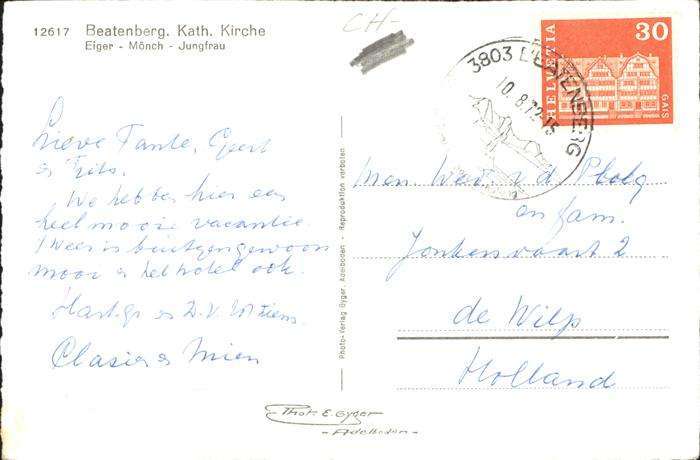 12617 Beatenberg. Kath. Kirche
Eiger - Mönch - Jungfrau
CH-
HELVETIA
30
GAIS
3803 BEATENBERG
10.8.72-15
Lieve Tante, Geert
en Frits.
We hebben hier een
heel mooie vacantie.
't Weer is buitengewoon
mooi en het hotel ook.
Hart. gr. en D.V. tot ziens.
en Mien
Photo-Verlag Gyger, Adelboden - Reproduktion verboten
Mevr. Wed. v.d. Ploeg
en fam.
Jonkersvaart 2
de Wilp
Holland
Phot. E. Gyger
- Adelboden -